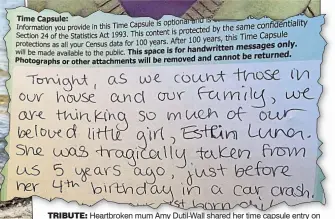 Time Capsule:
Information you provide in this Time Capsule is optional and is
Section 24 of the Statistics Act 1993. This content is protected by the same confidentiality
protections as all your Census data for 100 years. After 100 years, this Time Capsule
will be made available to the public. This space is for handwritten messages only.
Photographs or other attachments will be removed and cannot be returned.
Tonight, as we count those in
our house and our family, we
are thinking so much of our
beloved little girl, Estlin Luna.
She was tragically taken from
us 5 years ago, just before
her 4th birthday in a car crash.
TRIBUTE: Heartbroken mum Amy Dutil-Wall shared her time capsule entry on